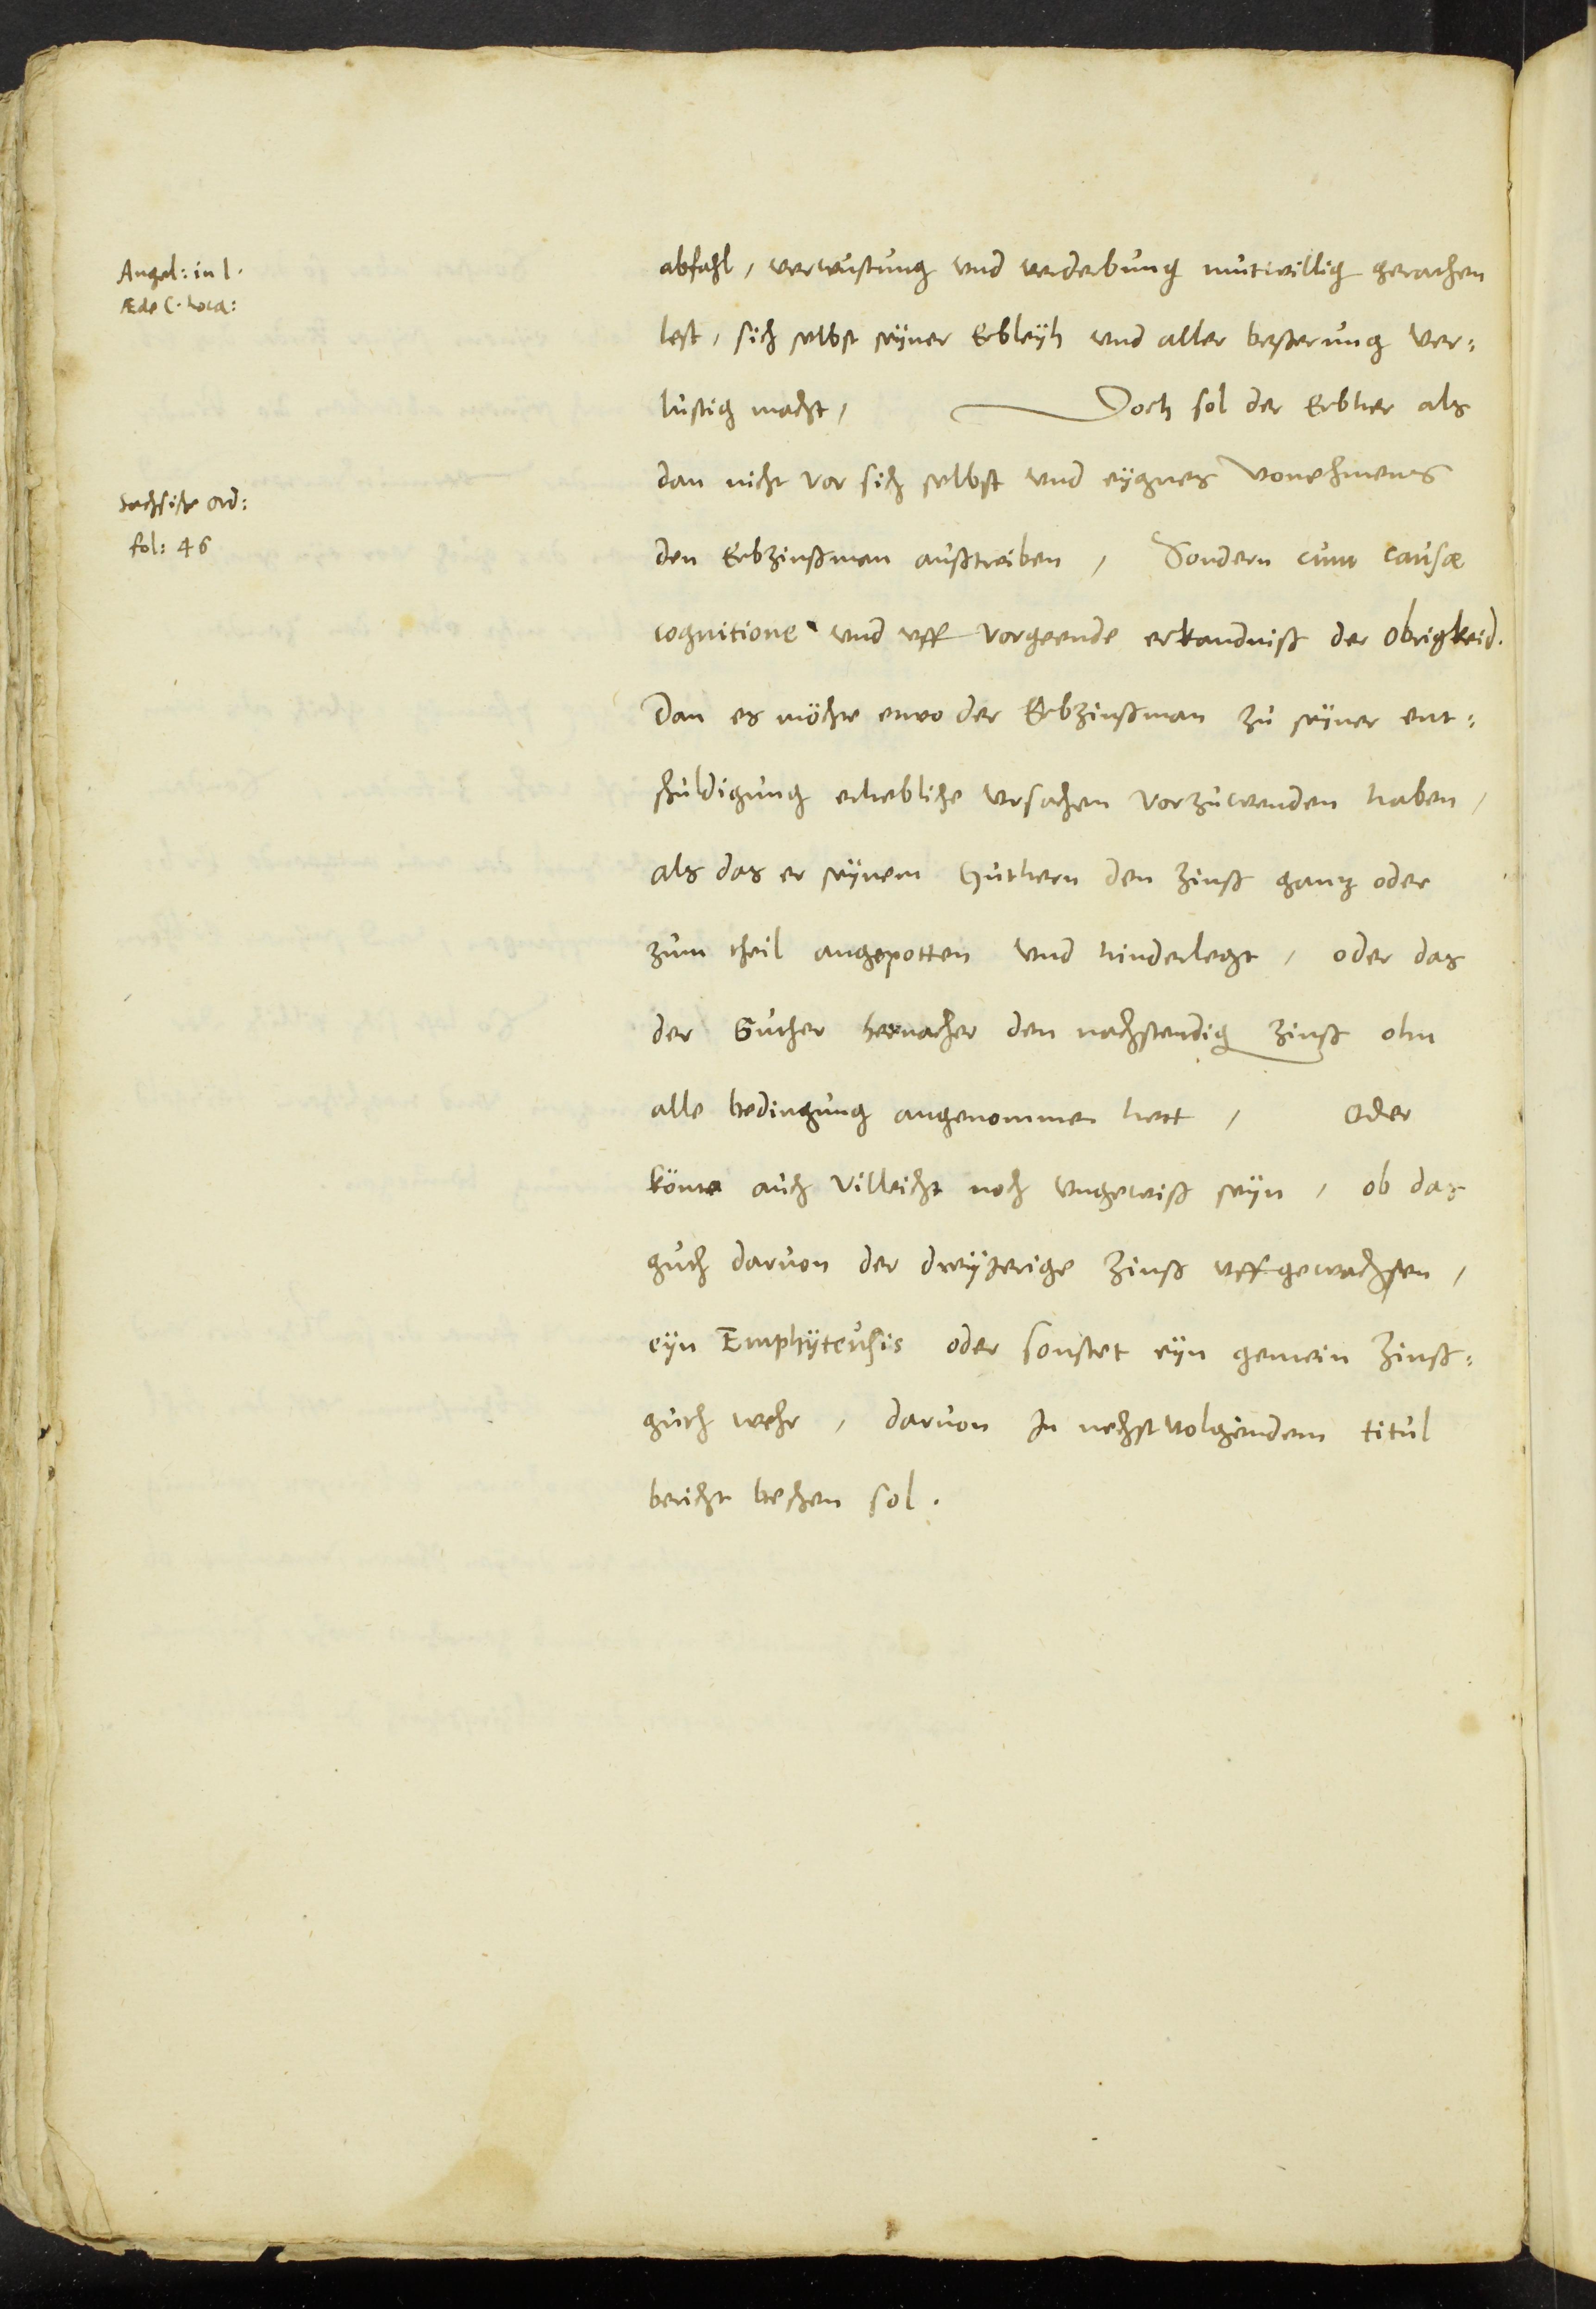 Angel: in l.
Æde C. Loca:
abfahl, verwustung und verderbung mutwillig gerathen
lest, sich selbst seÿner Erbleÿh und aller besserung ver=
lustig macht, Doch sol der Erbher als
dan nicht vor sich selbst und eÿgnes vonehmens
Sechsische Ord:
fol: 46
den Erbzinßman außtreiben, Sondern cum causæ
cognitione und uff vorgeende erkandniß der Obrigkeid.
Dan es möchte etwo der Erbzinßman zu seÿner ent=
schuldigung erhebliche ursachen vorzuwenden haben,
als das er seÿnem Guthern den zinß gantz oder
zum theil angepotten und hinderlegt, oder das
der Guther hernacher den nachstendig zinß ohn
alle bedingung angenommen hett, Oder
könte auch villeicht noch ungewiß seÿn, ob das
guth darvon der dreÿJerige zinß uffgewachsen,
eÿn Emphÿteusis oder sonstet eÿn gemein zinß=
guth wehr, darvon Jn nehstvolgendem titul
bericht beschen sol.